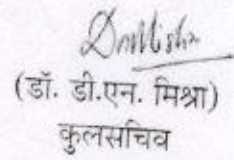 (डॉ. डी.एन. मिश्रा)
कुलसचिव